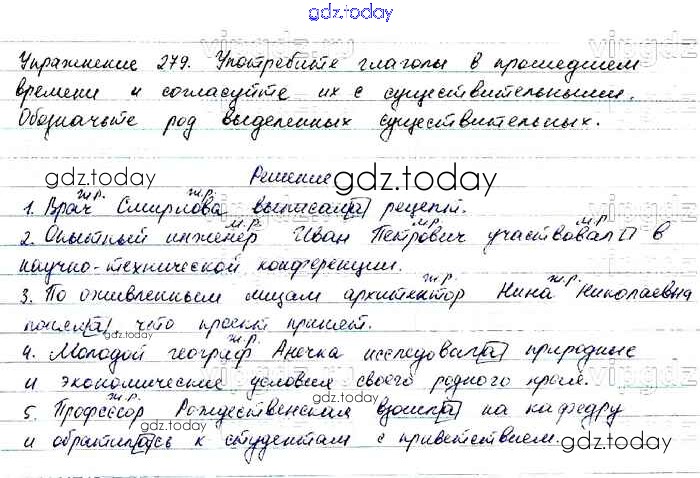 gdz.today
Упражнение 279. Употребите глаголы в прошедшем
времени и согласуйте их с существительными.
Обозначьте род выделенных существительных.
gdz.today Решение gdz.today
ж.р. ж.р.
1. Врач Смирнова выписала рецепт.
м.р. м.р. м.р.
2. Опытный инженер Иван Петрович участвовал в
научно-технической конференции.
ж.р. ж.р.
3. По оживленным лицам архитектор Нина Николаевна
поняла, что проект принят.
gdz.today
ж.р.
4. Молодой географ Анечка исследовала природные
и экономические условия своего родного края.
ж.р. gdz.today
5. Профессор Рождественская взошла на кафедру
и обратилась к студентам с приветствием.
gdz.today gdz.today